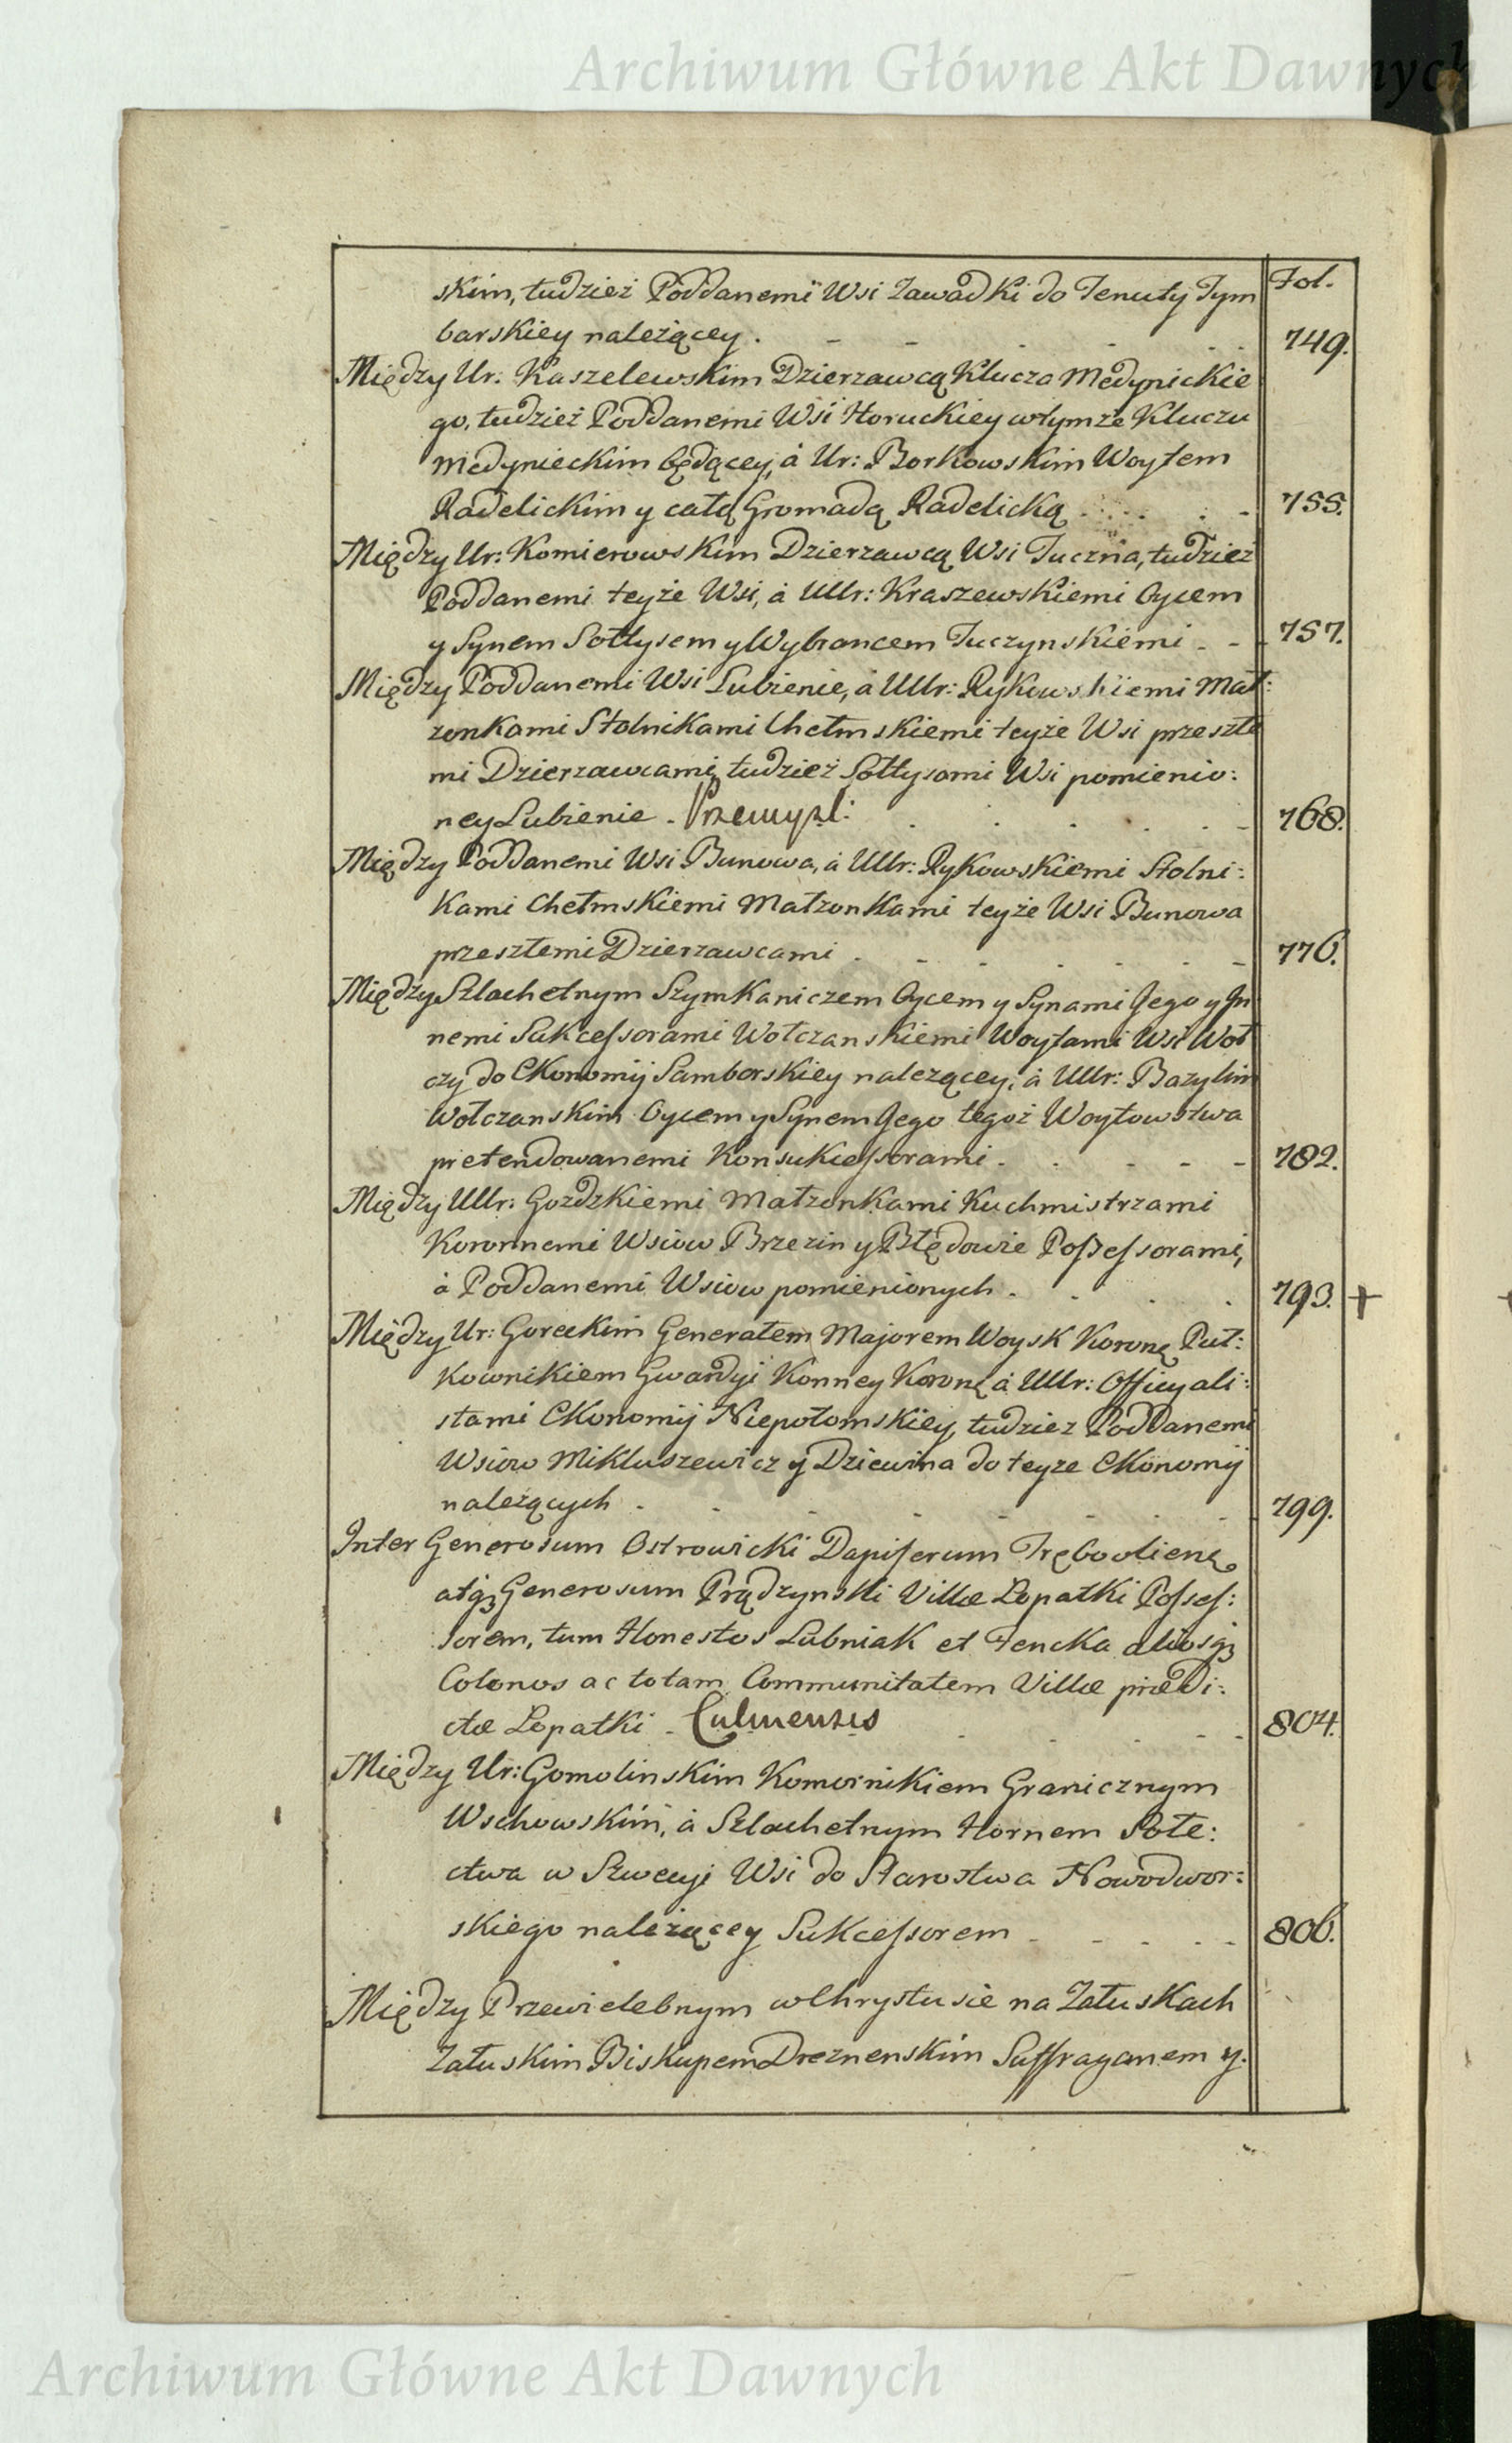 Archiwum Główne Akt Dawnych
Fol.
skim, tudzież Poddanemi Wsi Zawadki do Tenuty Tym
barskiey należącey. 749.
Między Ur: Kaszelewskim Dzierzawcą Klucza Medynickie
go, tudzież Poddanemi Wsi Horuckiey wtymże Kluczu
Medynieckim będącey, à Ur: Borkowskim Woytem
Radelickim y całą Gromadą Radelicką 755.
Między Ur: Komierowskim Dzierzawcą Wsi Tuczna, tudzież
Poddanemi teyże Wsi, à UUr: Kraszewskiemi Oycem
y Synem Sołtysem y Wybrancem Tuczynskiemi 757.
Między Poddanemi Wsi Lubienie, à UUr: Rykowskiemi Mał:
zonkami Stolnikami Chełmskiemi teyże Wsi przeszłe
mi Dzierzawcami, tudzież Sołtysami Wsi pomienio:
ney Lubienie - Przemysl: 768.
Między Poddanemi Wsi Bunowa, à UUr: Rykowskiemi Stolni:
kami Chełmskiemi Małzonkami teyże Wsi Bunowa
przeszłemi Dzierzawcami 776.
Między Szlachetnym Szymkaniczem Oycem y Synami Jego y In
nemi Sukcessorami Wołczanskiemi Woytami Wsi Woł
czy do Ekonomij Samborskiey nalezącey, à UUr: Bazylim
Wołczanskim Oycem y Synem Jego tegoż Woytowstwa
pretendowanemi Konsukcessorami 782.
Między UUr: Gozdzkiemi Małzonkami Kuchmistrzami
Koronnemi Wsiow Brzezin y Błędowie Possessorami,
à Poddanemi Wsiow pomienionych. 793. +
Między Ur: Goreckim Generałem Majorem Woysk Koronę Puł:
kownikiem Gwardyi Konney Koronę à UUr: Officyali:
stami Ekonomij Niepołomskiey, tudziez Poddanemi
Wsiow Mikluszewicz y Dziewina do teyze Ekonomij
należących 799.
Inter Generosum Ostrowicki Dapiferum Trębovlienę
atq3 Generosum Prądzynski Villæ Lopatki Posses:
sorem, tum Honestos Lubniak et Fencka aliosq3
Colonos ac totam Communitatem Villæ prædi:
ctæ Lopatki - Culmensis 804.
Między Ur: Gomolinskim Komornikiem Granicznym
Wschowskim, à Szlachetnym Hornem Sołe:
ctwa w Szwecyi Wsi do Starostwa Nowodwor:
skiego należącey Sukcessorem 806.
Między Przewielebnym wChrystusie na Załuskach
Załuskim Biskupem Dreznenskim Suffraganem y.
Archiwum Główne Akt Dawnych